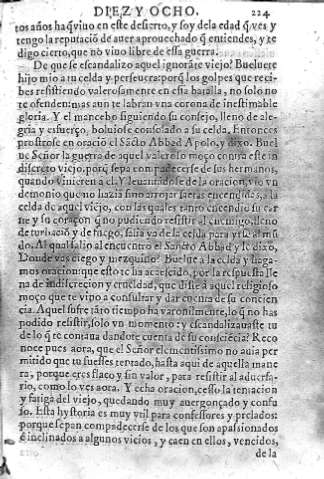 DIEZ Y OCHO. 224
tos años ha q̃ viuo en este desierto, y soy dela edad q̃ ves y
tengo la reputaciõ de auer aprouechado q̃ entiendes, y te
digo cierto, que nõ viuo libre de essa guerra.
De que se escandalizo aquel ignorãte viejo? Bueluete
hijo mio a tu celda y perseuera: porq̃ los golpes que reci-
bes resistiendo valerosamente en esta batalla, no solo no
te ofenden: mas aun te labran vna corona de inestimable
gloria. Y el mancebo siguiendo su consejo, lleno de ale-
gria y esfuerço, boluiose consolado a su celda. Entonces
prostrose en oraciõ el Sãcto Abbad Apolo, y dixo. Buel
ue Señor la guerra de aquel valeroso moço contra este in
discreto viejo, porq̃ sepa compadecerse de sus hermanos,
quando vinieren a el. Y leuantandose de la oracion, vio vn
demonio que
celda de aquel viejo, con las quales encendio su car
ne y su coraçon q̃ no pudiendo resistir al enemigo, lleno
de turbaciõ y de fuego, salia ya de la celda para yrse al mũ
do. Al qual salio al encuentro el Sancto Abbad y le dixo,
Donde vas ciego y mezquino? Buelue a la celda y haga-
mos oracion: que esto te ha acaecido, por la respuesta lle
na de indiscrecion y crueldad, que diste à aquel religioso
moço que te vino a consultar y dar cuenta de su concien
cia. Aquel sufre tãto tiempo ha varonilmente, lo q̃ no has
podido resistir, solo vn momento: y escandalizauaste tu
de lo q̃ te contaua dandote cuenta de su consciēcia? Reco
noce pues aora, que el Señor clementissimo no auia per
mitido que tu fuesses tentado, hasta aqui de aquella mane
ra, porque eres flaco y sin valor, para resistir al aduersa-
rio, como lo ves aora. Y echa oracion, cesso la tentacion
y fatiga del viejo, quedando muy auergonçado y confu
so. Esta hystoria es muy vtil para confessores y prelados:
porque sepan compadecerse de los que son apassionados
è inclinados a algunos vicios, y caen en ellos, vencidos,
de la